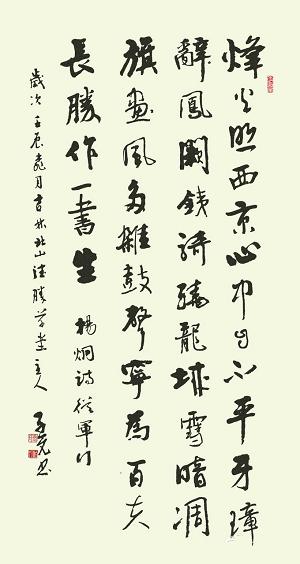 烽火照西京心中自不平牙璋
辭鳳闕鐵騎繞龍城雪暗凋
旗畫風多雜鼓聲寧為百夫
長勝作一書生
楊炯詩從軍行
歲次壬辰
月書於北山
勝
堂主人